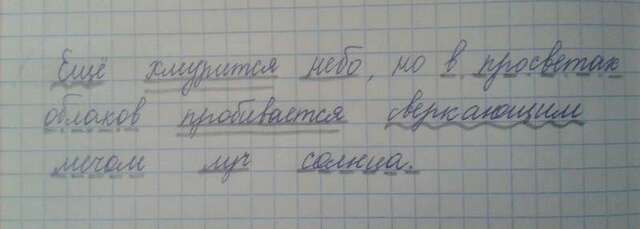 Ещё хмурится небо, но в просветах
облаков пробивается сверкающим
мечом луч солнца.